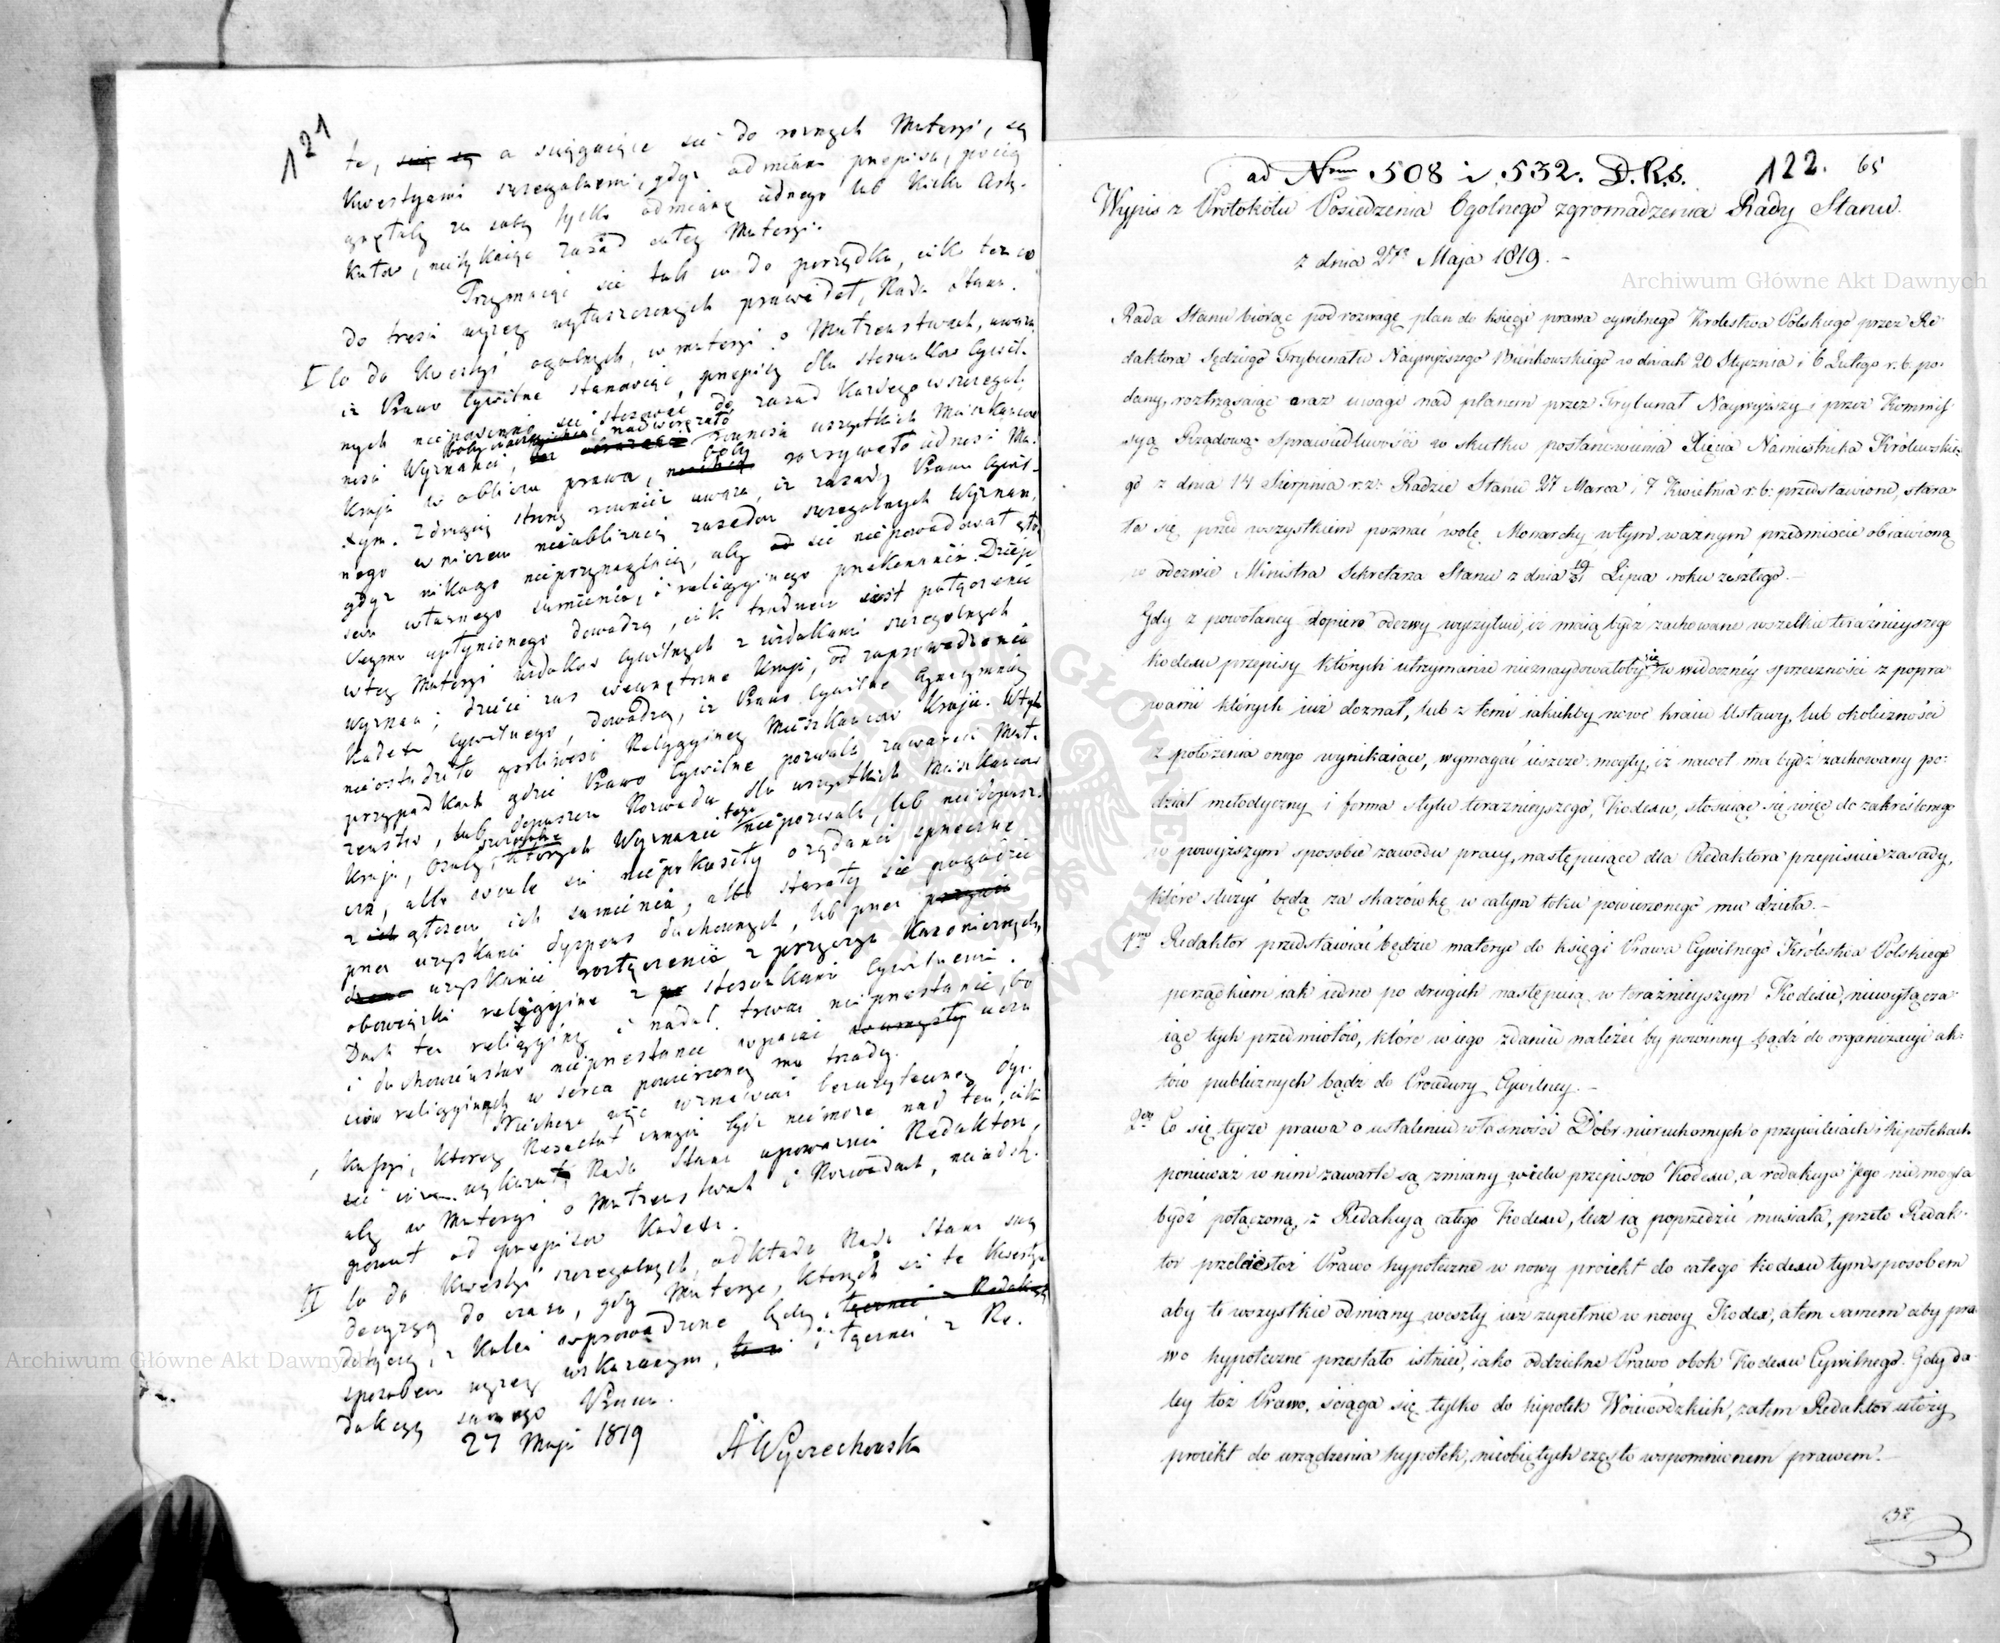 121
te, się są a sciągaiące się do roznych Materyi, są
Kwestyami szczegolnemi, gdyż odmiana przepisu, pocią
gnęłaby za sobą tylko odmianę iednego lub kilku Arty-
kułow, nietykaiąc zasad całey Materyi.
Trzymaiąc się tak co do porządku, iako też co
do treści wyżey wytuszczonych prawideł, Rada Stanu.
I Co do Kwestyi ogolnych, w materyi o Małżeństwach, uważa
iż Prawo Cywilne stanowiąc przepisy dla stosunkow Cywil-
nych niepowinno się stosować do zasad każdego w szczegol
ności Wyznania, rowności wszystkich Mieszkańcow
Kraju w obliczu prawa, rozrywało iedność Na-
rodu. Z drugiey strony rownież uważa, iż zasady Prawa Cywil-
nego w niczem nieubliżaią zasadom szczegolnych Wyznań,
gdyż nikogo nieprzynaglaią, aby się niepowodował gło-
sem własnego sumienia, i religiynego przekonania. Dzieje
Seymu upłynionego dowodzą, iak trudnem iest połączenie
w tey Materyi widokow Cywilnych z widokami szczegolnych
Wyznań; dzieie zaś wewnętrzne Kraju, od zaprowadzenia
Kodexu Cywilnego, dowodzą, iż Prawo Cywilne bynaymniey
nieostudziło gorliwości Religyiney Mieszkańcow Kraju. W tych
przypadkach gdzie Prawo Cywilne pozwala zawarcia Mał-
żeństw, lub dopuszcza Rozwodu dla wszystkich Mieszkańcow
Kraju, Osoby, ktorych Wyznanie tego niepozwala, lub niedopusz-
cza, albo wcale się niepokusiły o żądanie sprzeczne
z głosem ich sumienia, albo starały się pogodzić
przez uzyskanie dyspens duchownych, lub przez
uzyskanie rozłączenia z przyczyn Kanonicznych,
obowiązki religiyne z stosunkami Cywilnemi.
Duch ten religiyny i nadal trwać nieprzestanie, bo
i duchowieństwo nieprzestanie wpaiać uczu
ciów religiynych w serca powierzoney mu trzody.
Niechcąc więc wznawiać bezużyteczney dys-
kussyi, ktorey Rezultat innym być niemoże nad ten, iaki
się wyżey wykazał, Rada Stanu upoważnia Redaktora,
aby w Materyi o Małżeństwach i Rozwodach, nieodstę-
pował od przepisow Kodexu.
II Co do Kwestyi szczegolnych, odkłada Rada Stanu swą
decyzyą do czasu, gdy Materye, ktorych się te Kwestye
dotyczą, z kolei wprowadzone będą,
sposobem wyżey wskazanym, i łącznie z Re-
dakcyą samego Prawa.
27 Maja 1819 AWyczechowski
ad Nrum 508 i 532. D.R.S. 122. 65
Wypis z Protokołu Posiedzenia Ogolnego zgromadzenia Rady Stanu.
z dnia 27go Maja 1819. –
Rada Stanu biorąc pod rozwagę plan do księgi prawa cywilnego Krolestwa Polskiego przez Re
daktora Sędziego Trybunału Naywyższego Bieńkowskiego w dniach 20 Stycznia i 6 Lutego r. b. po-
dany, roztrząsaiąc oraz uwagi nad planem przez Trybunał Naywyższy i przez Kommis-
syą Rządową Sprawiedliwości w skutku postanowienia Xięcia Namiestnika Królewskie-
go z dnia 14 Sierpnia r. z. Radzie Stanu 27 Marca i 7 Kwietnia r. b. przedstawione, stara
ła się przed wszystkiem poznać wolę Monarchy w tym ważnym przedmiocie obiawioną
w odezwie Ministra Sekretarza Stanu z dnia 19/31 Lipca roku zeszłego. –
Gdy z powołaney dopiero odezwy wyczytuie, iż maią bydź zachowane wszelkie teraźnieyszego
kodexu przepisy których utrzymanie nieznaydowałoby się w widoczney sprzeczności z popra
wami których iuż doznał, lub z temi iakichby nowe kraiu Ustawy, lub okoliczności
z położenia onego wynikaiące, wymagać ieszcze mogły, iż nawet ma bydź zachowany po-
dział metodyczny i forma stylu teraznieyszego Kodexu, stosuiąc się więc do zakreślonego
w powyższym sposobie zawodu pracy, następuiące dla Redaktora przepisuie zasady,
które służyć będą za skazówkę w całym toku powierzonego mu dzieła. –
1mo Redaktor przedstawiać będzie materye do księgi Prawa Cywilnego Królestwa Polskiego
porządkiem iak iedne po drugich następuią w teraźnieyszym Kodexie, niewyłącza-
iąc tych przedmiotów, które w iego zdaniu należeć by powinny bądź do organizacyi ak-
tów publicznych bądź do Procedury Cywilney. –
2do Co się tycze prawa o ustaleniu własności Dóbr nieruchomych o przywileiach i hipotekach
ponieważ w nim zawarte są zmiany wielu przepisów Kodexu, a redakcya Jego nie mogła
bydź połączoną z Redakcyą całego Kodexu, lecz ią poprzedzić musiała, przeto Redak-
tor przeleie toż Prawo hypoteczne w nowy proiekt do całego kodexu tym sposobem
aby te wszystkie odmiany weszły iuż zupełnie w nowy Kodex, a tem samem aby pra-
wo hypoteczne przestało istnieć, iako oddzielne Prawo obok Kodexu Cywilnego. Gdy da-
ley toż Prawo, ściąga się tylko do hipotek Woiewódzkich, zatem Redaktor ułoży
proiekt do urządzenia hypotek, nieobiętych często wspomnionem prawem. –
Archiwum Główne Akt Dawnych
Archiwum Główne Akt Dawnych